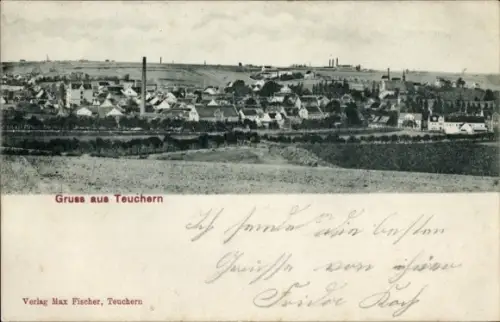 Gruss aus Teuchern
Ich sende dir die besten
Grüsse von ihrer
Frida Koch
Verlag Max Fischer, Teuchern